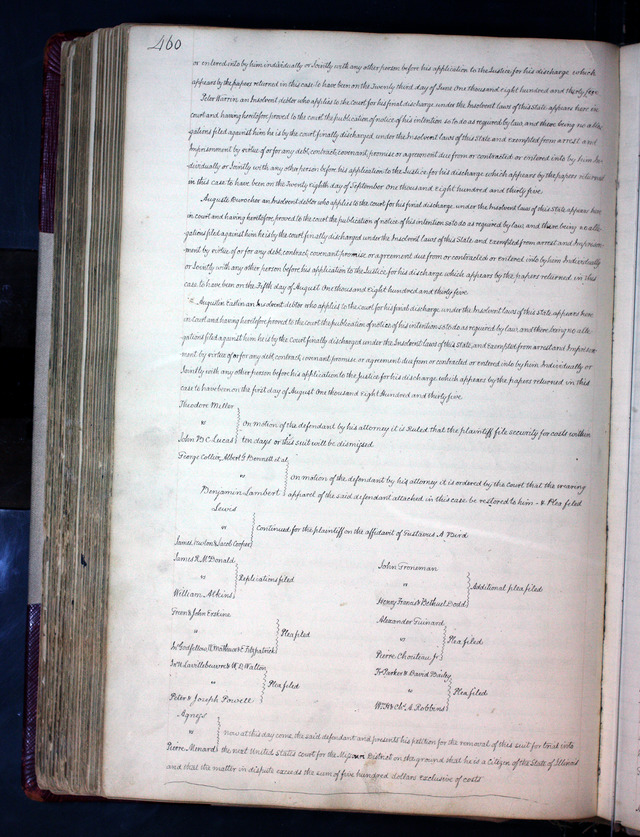 460
or entered into by him individually or Jointly with any other person before his application to the Justice for his discharge which
appears by the papers returned in this case to have been on the Twenty third day of June One thousand eight hundred and thirty five
Peter an Insolvent debtor who applies to the court for his final discharge under the Insolvent laws of this state appears here in
court and having heretofore proved to the court the publication of notice of his intention so to do as required by law, and there being no alle
gations filed against him he is by the court finally discharged under the Insolvent laws of this State and exempted from arrest and
Imprisonment by virtue of or for any debt, contract, covenant, promise or agreement due from or contracted or entered into by him In
dividually or Jointly with any other person before his application to the Justice for his discharge which appears by the papers returned
in this case to have been on the Twenty eighth day of September One thousand Eight hundred and thirty five
Auguste Durocher an Insolvent debtor who applies to the court for his final discharge under the Insolvent laws of this State appears here
in court and having heretofore proved to the court the publication of notice of his intention so to do as required by law, and there being no alle
gations filed against him he is by the court finally discharged under the Insolvent laws of this State and Exempted from arrest and Imprison
ment by virtue of or for any debt, contract, covenant promise or agreement due from or contracted or entered into by him Individually
or Jointly with any other person before his application to the Justice for his discharge which appears by the papers returned in this
case to have been on the Fifth day of August One thousand Eight hundred and thirty five
Augustin an Insolvent debtor who applies to the court for his final discharge under the Insolvent laws of this state appears here
in court and having heretofore proved to the court the publication of notice of his intention so to do as required by law, and there being no alle
gations filed against him he is by the Court finally discharged under the Insolvent laws of this state, and Exempted from arrest and Imprison
ment by virtue of or for any debt, contract, covenant promise or agreement due from or contracted or entered into by him Individually or
Jointly with any other person before his application to the Justice for his discharge which appears by the papers returned in this
case to have been on the first day of August One thousand Eight Hundred and thirty five
Theodore Miller
vs
John B C Lucas
on motion of the defendant by his attorney it is Ruled that the plaintiff file security for costs within
ten days or this suit will be dismissed
George Collier, Albert G Bonnell et al
vs
Benjamin Lambert
on motion of the defendant by his attorney it is ordered by the Court that the wearing
apparel of the said defendant attached in this case be restored to him - & Plea filed
Lewis
vs
James Newton & Jacob Cooper
Continued for the plaintiff on the affidavit of Gustavus A Bird
James R McDonald
vs
William Atkins
Replications filed
John Troneman
vs
Henry Francis & Bethuel Dodd
Additional plea filed
Green & John Erskine
vs
Jas Goodfellow, & E Fitzpatrick
Plea filed
Alexander Guinard
vs
Pierre Chouteau Jr
Plea filed
& W D Walton
vs
Peter & Joseph Powell
Plea filed
Parker & David Bailey
vs
Wm H & Chs A Robbins
Plea filed
Agness
vs
Pierre Menard
now at this day come the said defendant and presents his petition for the removal of this suit for trial into
the next United States court for the Missouri District on the ground that he is a Citizen of the State of Illinois
and that the matter in dispute exceeds the sum of five hundred dollars exclusive of costs